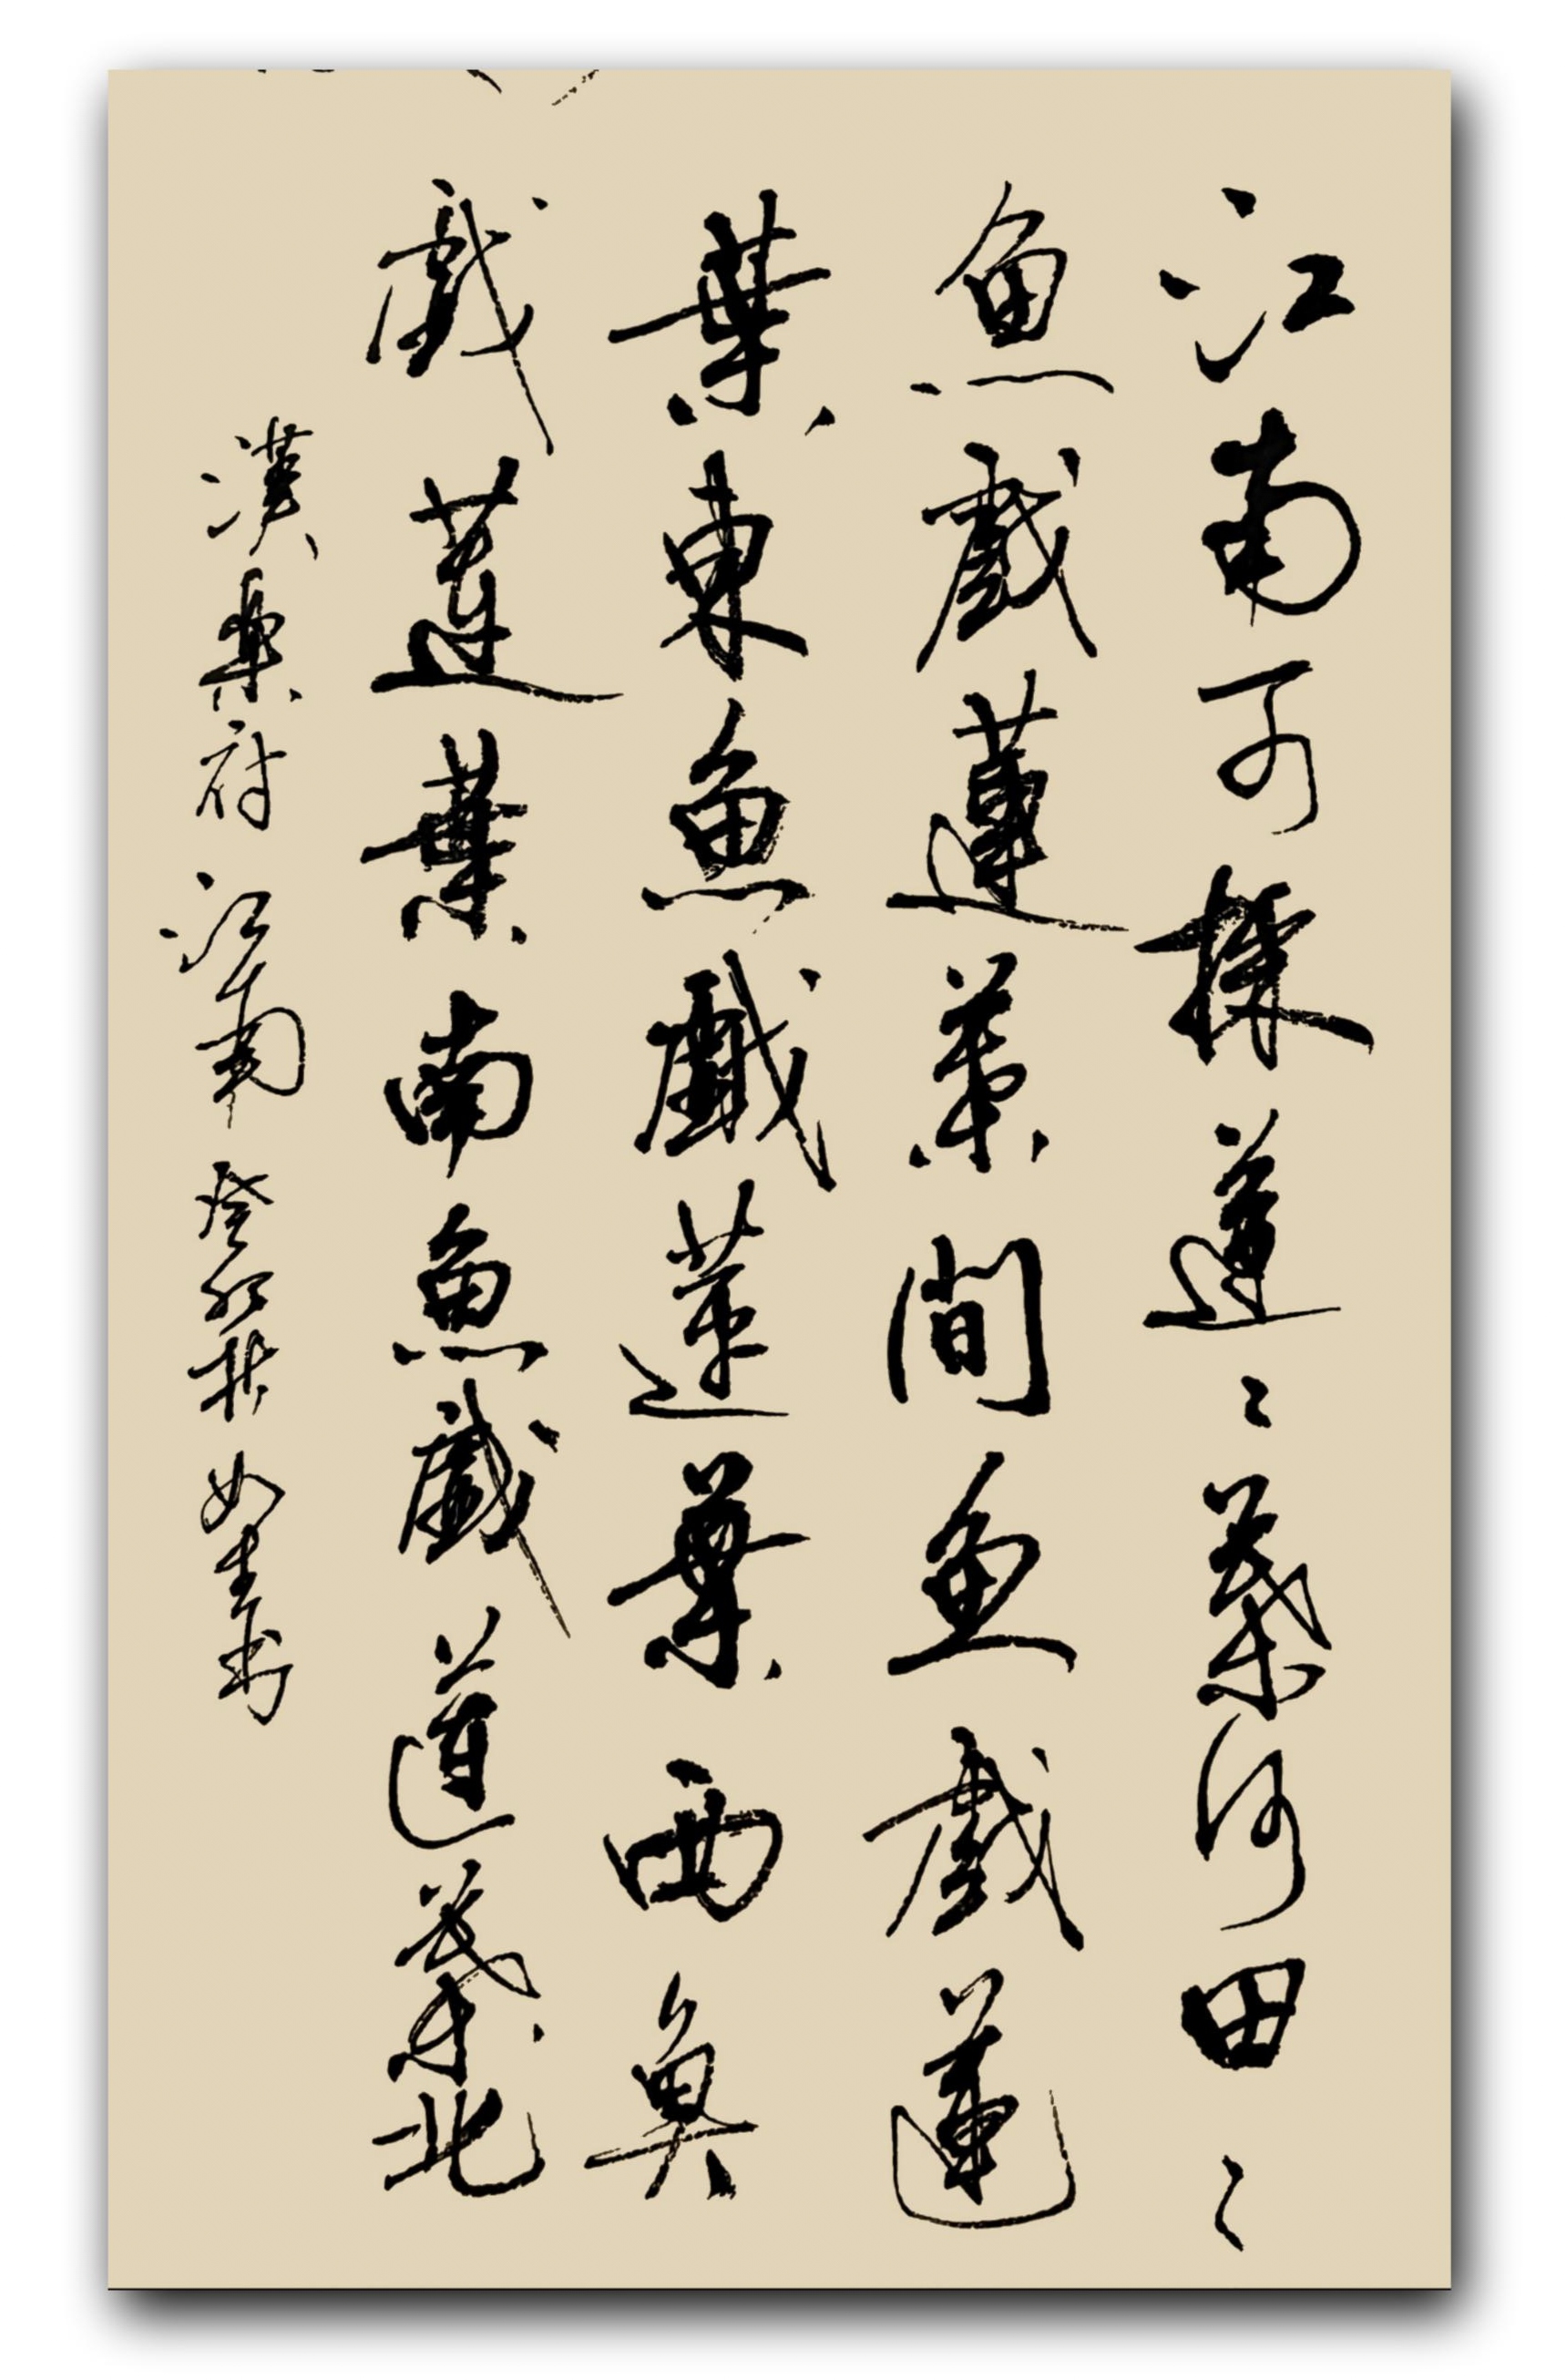 江南可採蓮〻葉何田〻
魚戲蓮葉間魚戲蓮
葉東魚戲蓮葉西魚
戲蓮葉南魚戲蓮葉北
漢樂府江南癸卯如生書